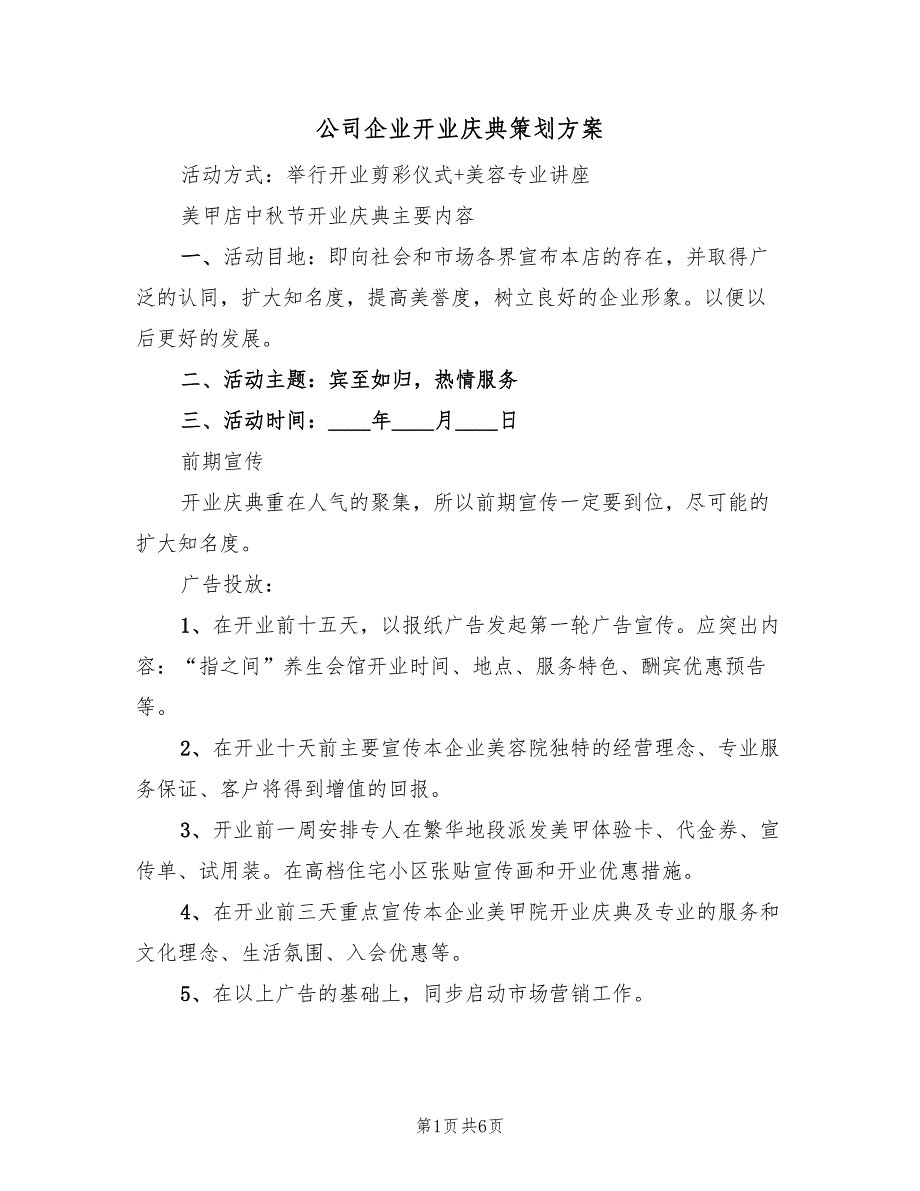 公司企业开业庆典策划方案
活动方式：举行开业剪彩仪式+美容专业讲座
美甲店中秋节开业庆典主要内容
一、活动目地：即向社会和市场各界宣布本店的存在，并取得广
泛的认同，扩大知名度，提高美誉度，树立良好的企业形象。以便以
后更好的发展。
二、活动主题：宾至如归，热情服务
三、活动时间：____年____月____日
前期宣传
开业庆典重在人气的聚集，所以前期宣传一定要到位，尽可能的
扩大知名度。
广告投放：
1、在开业前十五天，以报纸广告发起第一轮广告宣传。应突出内
容：“指之间”养生会馆开业时间、地点、服务特色、酬宾优惠预告
等。
2、在开业十天前主要宣传本企业美容院独特的经营理念、专业服
务保证、客户将得到增值的回报。
3、开业前一周安排专人在繁华地段派发美甲体验卡、代金券、宣
传单、试用装。在高档住宅小区张贴宣传画和开业优惠措施。
4、在开业前三天重点宣传本企业美甲院开业庆典及专业的服务和
文化理念、生活氛围、入会优惠等。
5、在以上广告的基础上，同步启动市场营销工作。
第1页共6页